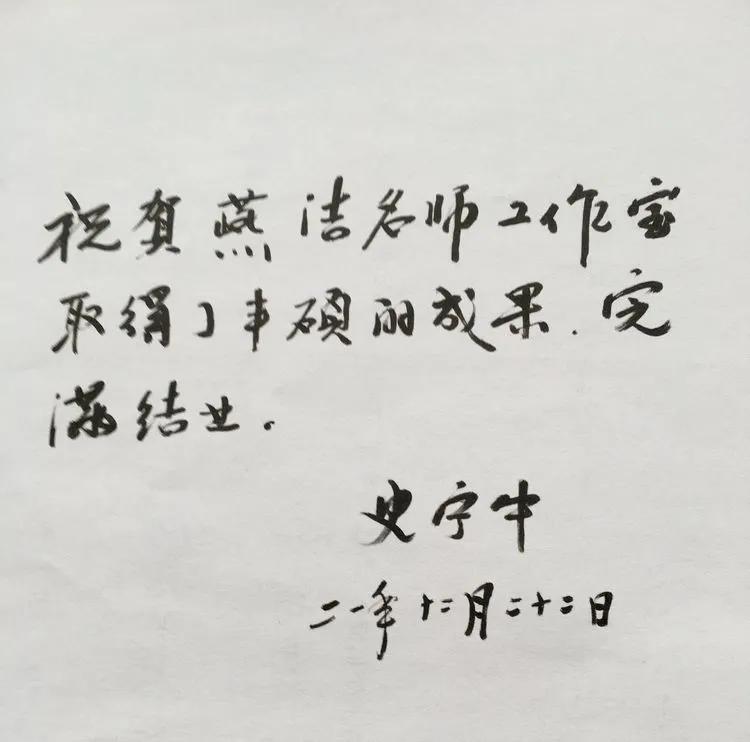 祝贺燕洁名师工作室
取得了丰硕的成果.完
满结业.
史宁中
二一年十二月二十二日